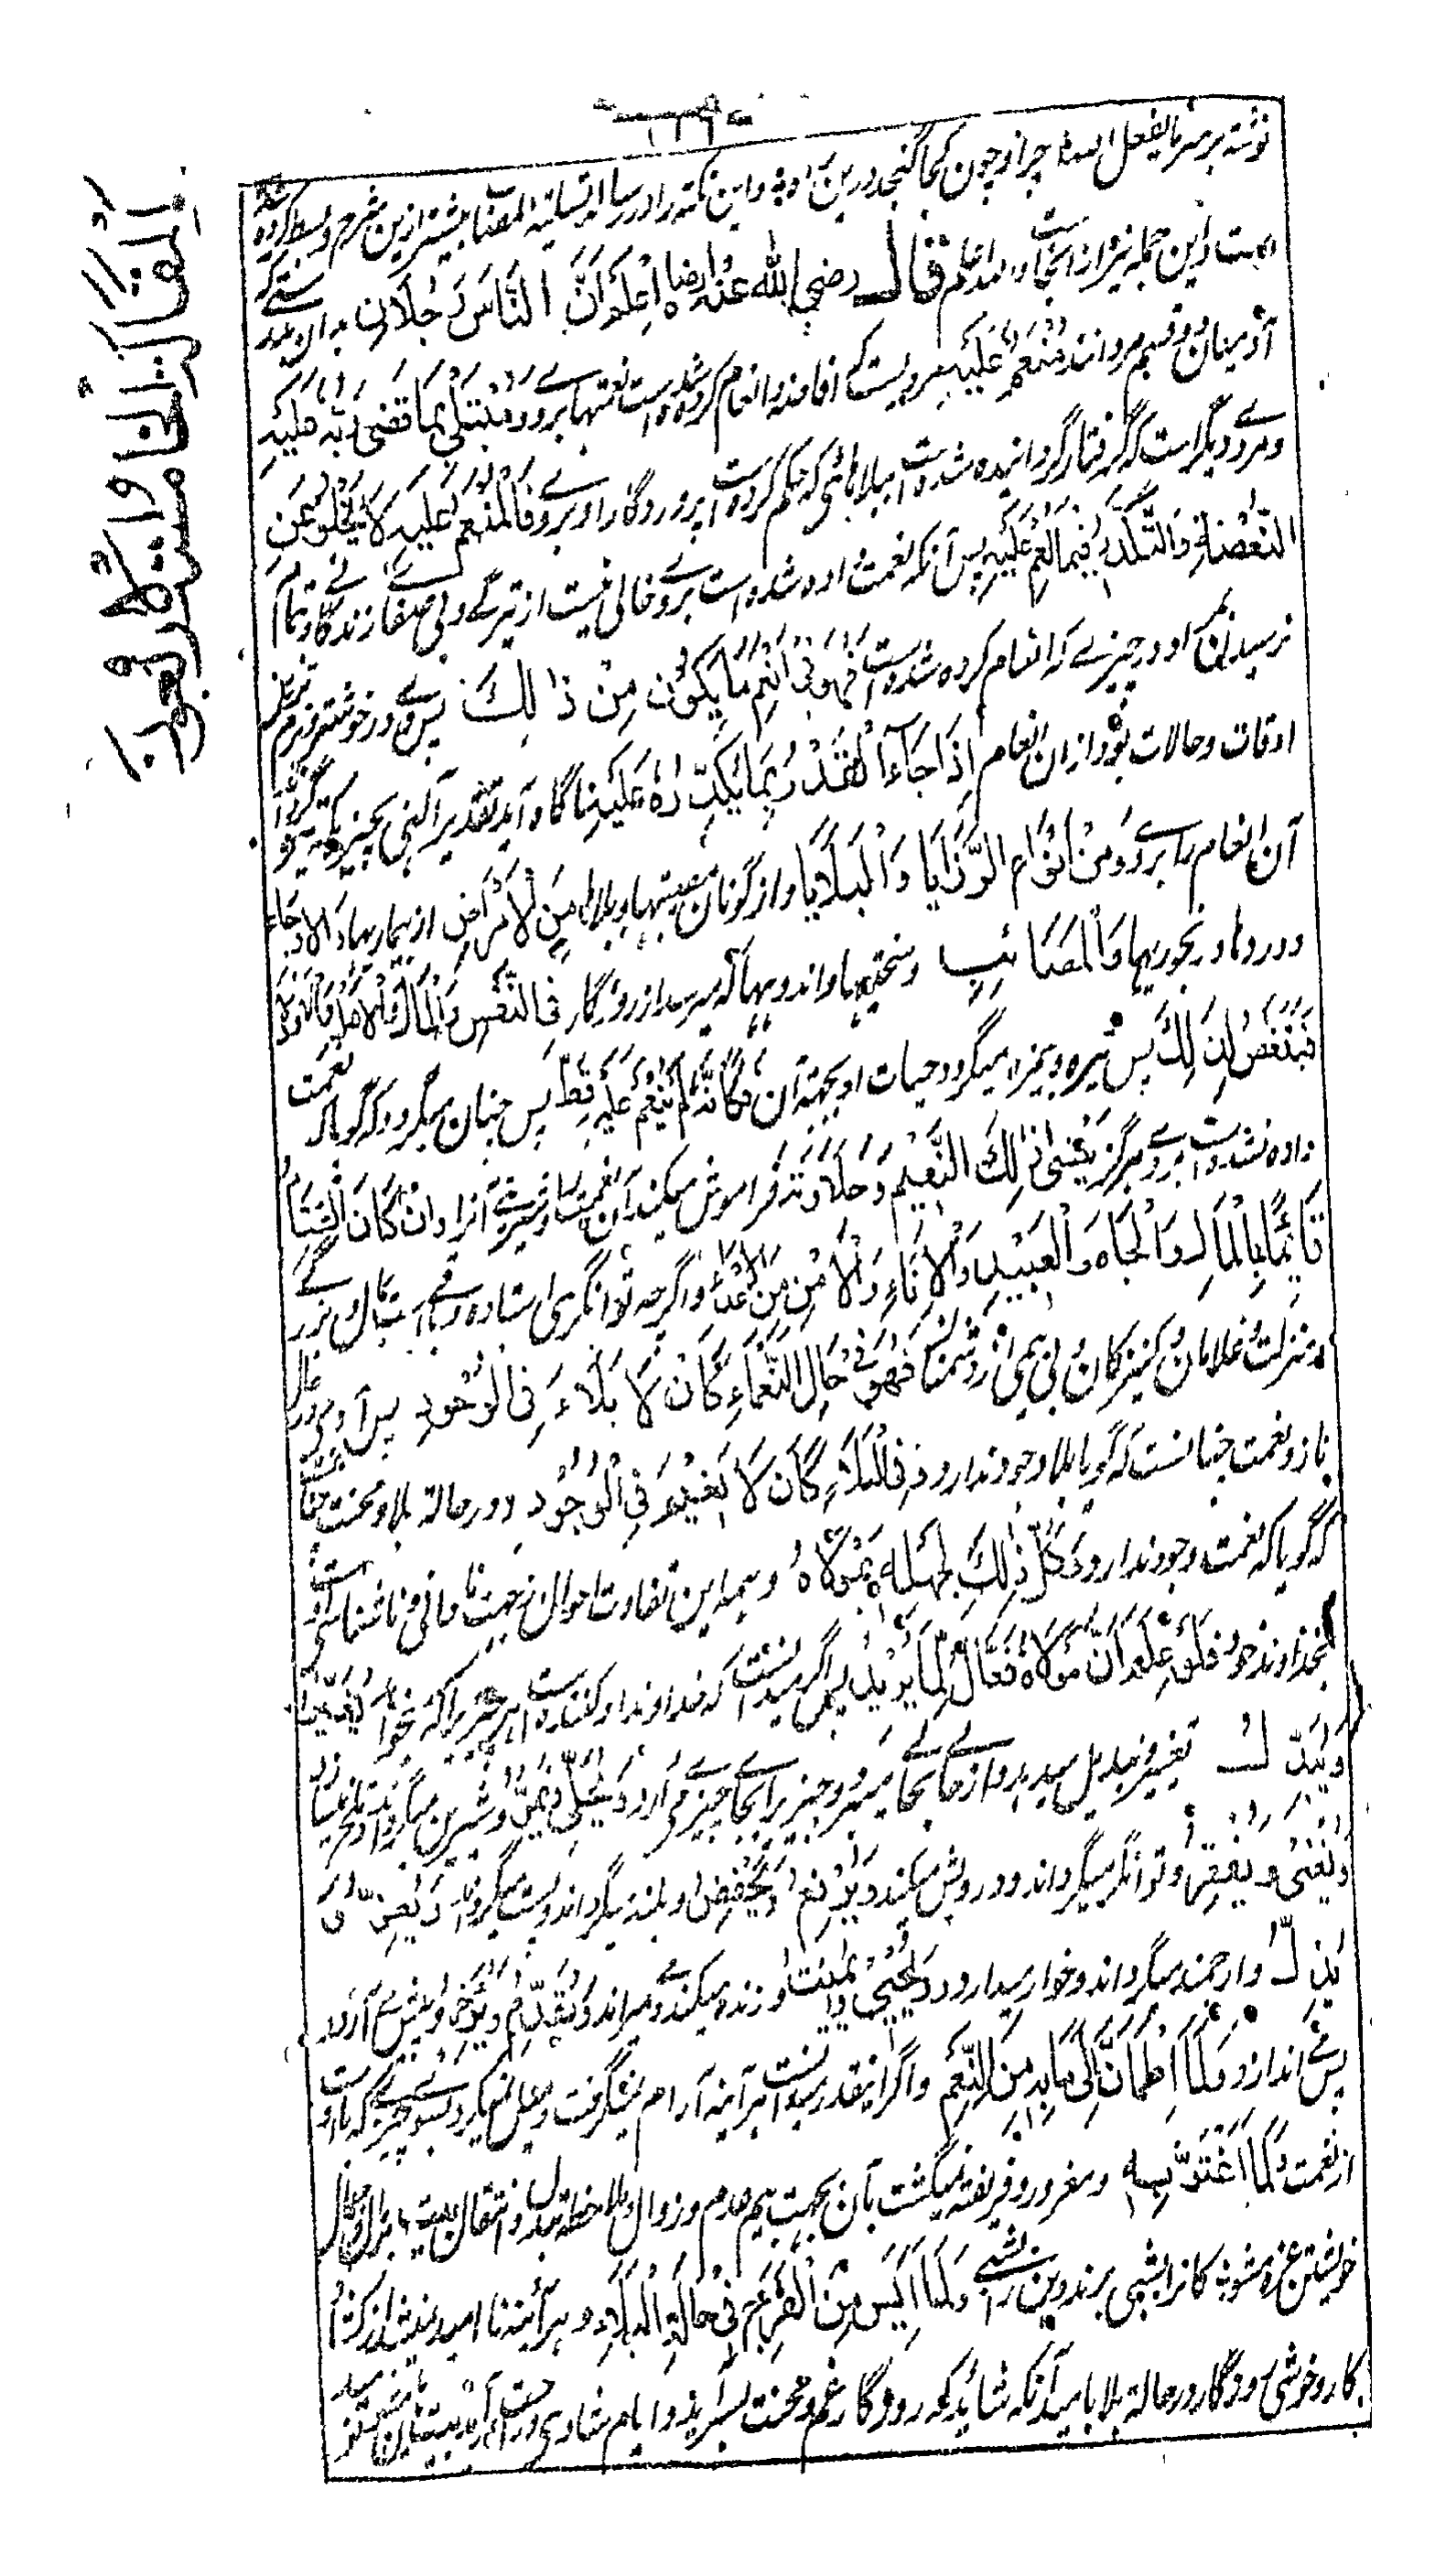 نوشته بر سر ما یفعل الله ما چرا و چون کجا گنجد درین ره و این نکته را در رساله تسلیة المصاب بیشتر ازین شرح و بسط کرده شده
است و این جمله نیز از آنجاست والله اعلم قال رضی الله عنه وارضاه اعلم ان الناس رجلان بدان
آدمیان دو قسم مردانند منعم علیه مردیست که افاضه و انعام کرده شده است نعمتها بروے و مبتلی بما قضی ربه علیه
و مردے دیگر است که گرفتار گردانیده شده است ببلاهائی که حکم کرده است پروردگار او بروے فالمنعم علیه لا یخلو عن
و التکدر فیما انعم علیه پس آنکه نعمت داده شده است بروے خالی نیست از تیرگی و بی صفا زندگانی
او در چیزے که انعام کرده شده است فهو فی انعم ما یکون من ذلک پس وے در خوشترو
اوقات و حالات بود از ان انعام اذا جاء القدر بما یکدره علیه ناگاه آید تقدیر الٰهی بچیزے که تیره گرداند
آن انعام را بروے من انواع الرزایا و البلایا و از گوناگون مصیبتها و بلاها من الامراض از بیماریها و الاوجاع
و دردها و رنجوریها و المصائب و سختیها و اندوهها که میرسد از روزگار فی النفس و المال و الاهل و الاولاد
فیتنغص لذلک پس تیره و بیمزه میگردد حیات او بجهة آن فکانه لم ینعم علیه قط پس چنان میگردد که گویا که نعمت
داده نشده است بروے هرگز ینسی ذلک النعیم و حلاوته فراموش میکند آن نعمت را و شیرینی آنرا و ان کان الغناء
قائما بالمال و الجاه و العبید و الاماء و الامن من الاعداء و اگرچه توانگری استاده و قائم است بمال و بزرگے
و منزلت و غلامان و کنیزکان و بی بیمی از دشمنان فهو فی حال النعماء کان لا بلاء فی الوجود پس آدمی در حال
ناز و نعمت چنانست که گویا بلا وجود ندارد و فی البلاء کان لا نعیم فی الوجود و در حالة بلا و محنت چنانست
که گویا که نعمت وجود ندارد و کل ذلک لجهله بمولاه و همه این تفاوت احوال از جهت نادانی و ناشناسی اوست
بخداوند خود فلو علم ان مولاه فعال لما یرید پس اگر میدانست که خداوند او کننده است هر چیزیرا که بخواهد یغیر
و یبدل تغییر و تبدیل میدهد و از جائے بجائے میبرد و چیزیرا بجائے چیزے می آرد و یحلی و یمر و شیرین میگرداند و تلخ میسازد
و یغنی و یفقر و توانگر میگرداند و درویش میکند و یرفع و یخفض و بلند میگرداند و پست میگرداند و یعز و
یذل و ارجمند میگرداند و خوار میدارد و یحیی و یمیت و زنده میکند و میراند و یقدم و یؤخر و پیش می آرد و
پس اندازد لما اطمأن الی ما به من النعم و اگر اینقدر میدانست هرآینه آرام نمیگرفت و میل نمیکرد بسوے چیزے که باوست
از نعمت و لما اغتر به و مغرور و فریفته نمیگشت بآن بجهت بیم عدم و زوال و ملاحظه تبدل و انتقال
خویشتن غره مشو کانرا بشبی برند و این را به تبی و لما ایس من الفرج فی حالة البلاء و هرآئینه ناامید نمیشد از کشاد
کار و خوشی روزگار در حالة بلا بامید آنکه شاید که روزگار غم و محنت بسر آید و ایام شادی و راحت در آید
المقالة الخامسة و الاربعون